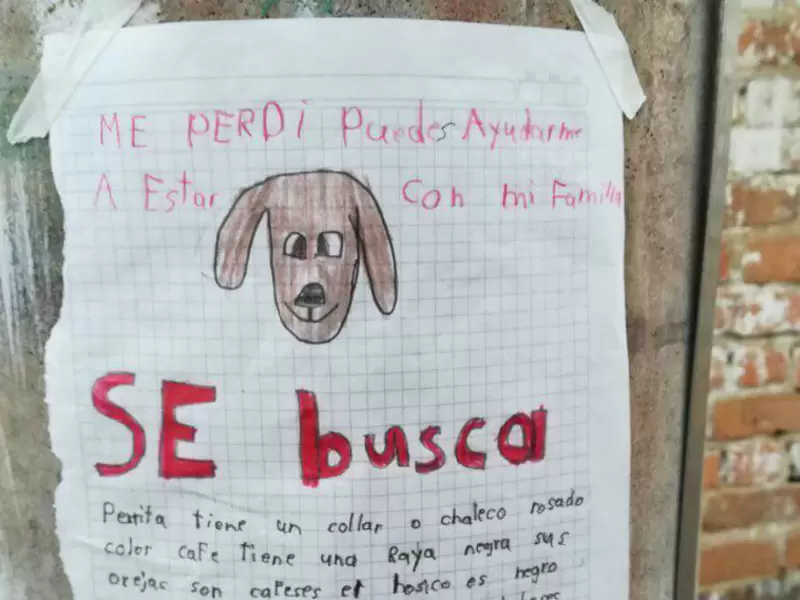 ME PERDi Puedes Ayudarme
A Estar Con mi Familia
SE busca
Perrita tiene un collar o chaleco rosado
color cafe tiene una Raya negra sus
orejas son cafeses el hosico es negro